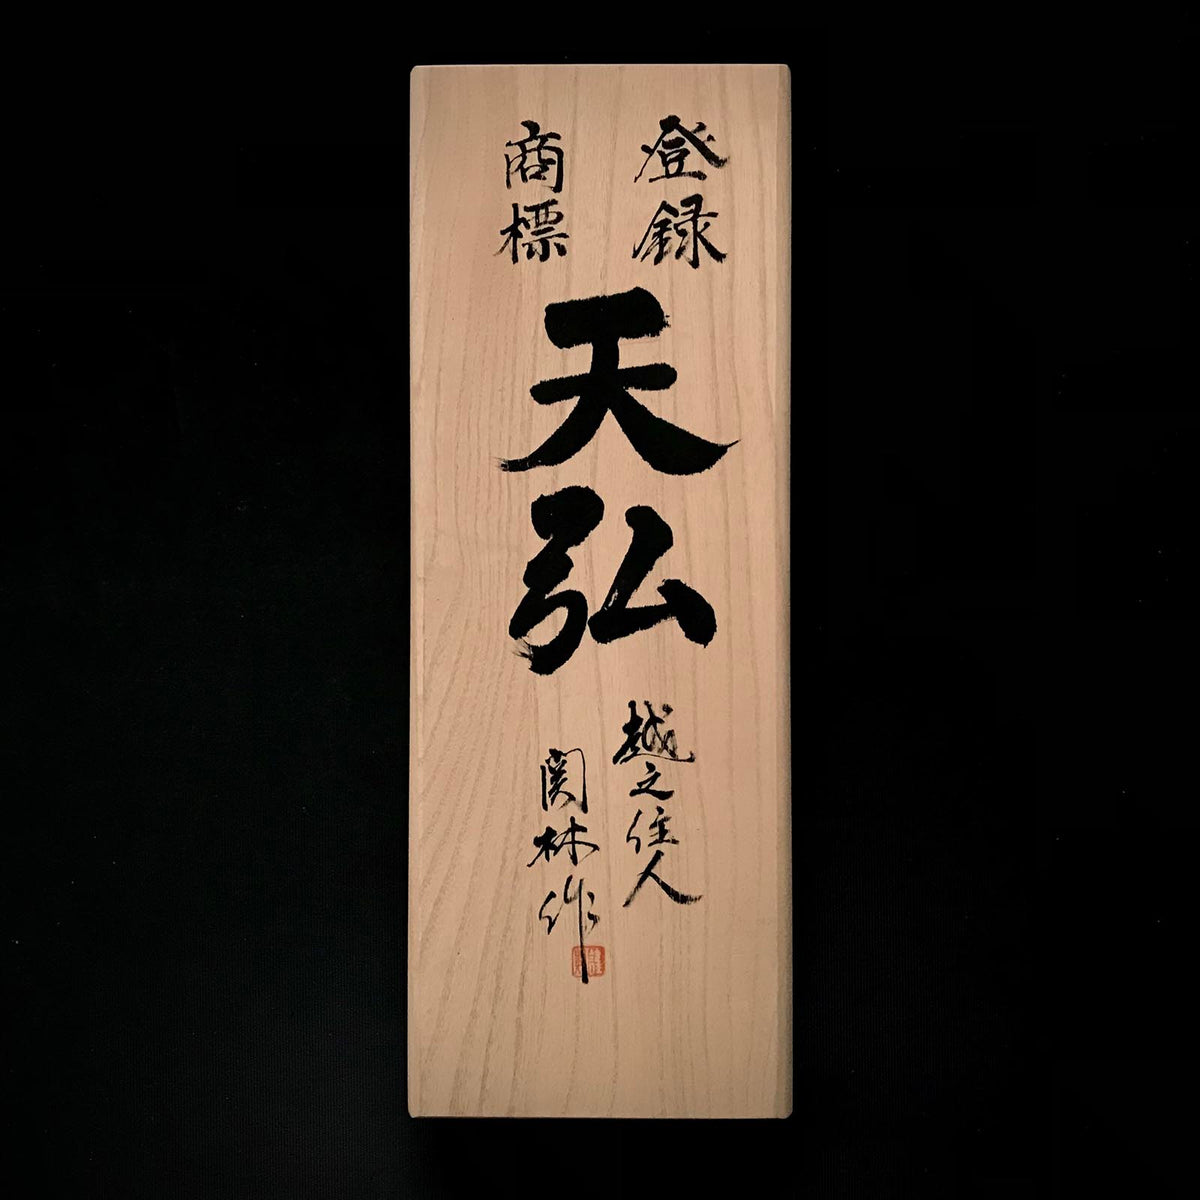 登録
商標
天弘
越之住人
関林作